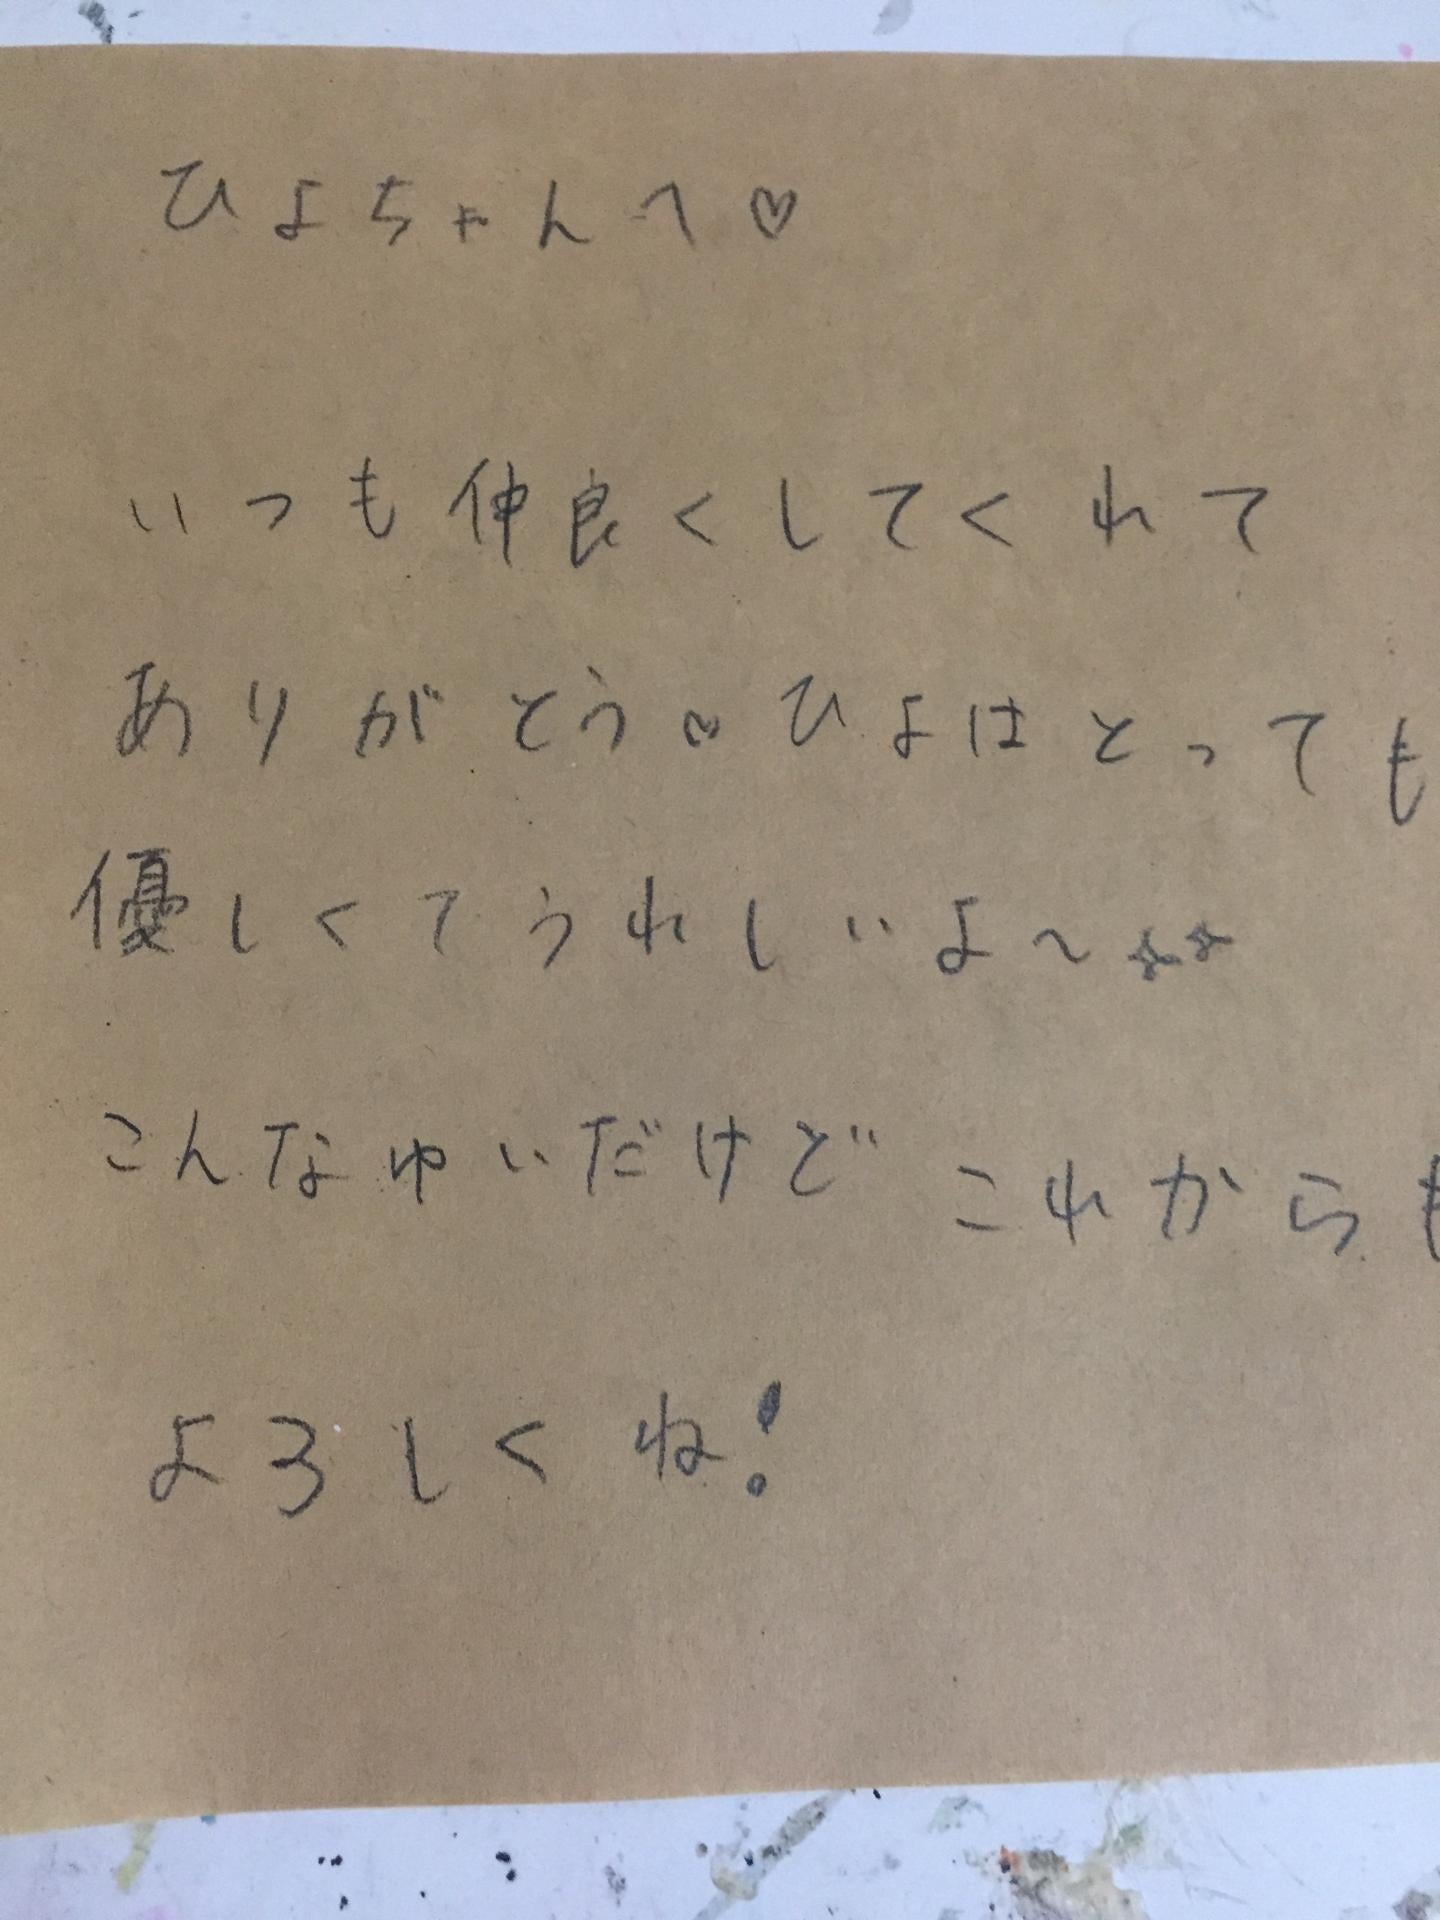 ひよちゃんへ♡
いつも仲良くしてくれて
ありがとう♡ひよはとっても
優しくてうれしいよ〜☆☆
こんなゆいだけど これからも
よろしくね!